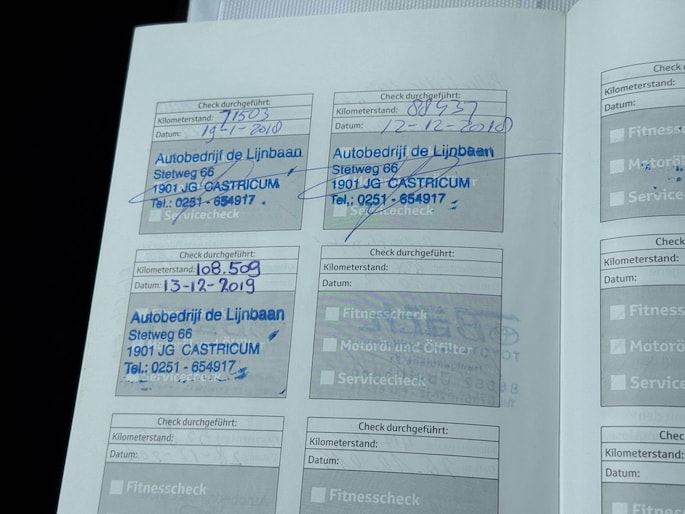 Check durchgeführt:
Kilometerstand: 71503
Datum: 19-1-2018
Autobedrijf de Lijnbaan
Stetweg 66
1901 JG CASTRICUM
Tel.: 0251 - 654917
Servicecheck
Check durchgeführt:
Kilometerstand: 88437
Datum: 12-12-2018
Autobedrijf de Lijnbaan
Stetweg 66
1901 JG CASTRICUM
Tel.: 0251 - 654917
Servicecheck
Check durchgeführt:
Kilometerstand: 108.509
Datum: 13-12-2019
Autobedrijf de Lijnbaan
Stetweg 66
1901 JG CASTRICUM
Tel.: 0251 - 654917
Servicecheck
Check durchgeführt:
Kilometerstand:
Datum:
Fitnesscheck
Motoröl und Ölfilter
Servicecheck
Check durchgeführt:
Kilometerstand:
Datum:
Fitnesscheck
Check durchgeführt:
Kilometerstand:
Datum:
Fitnesscheck
Check
Kilometerstand:
Datum:
Fitness
Motoröl
Service
Check
Kilometerstand:
Datum:
Fitness
Motorö
Service
Check
Kilometerstand:
Datum:
Fitness